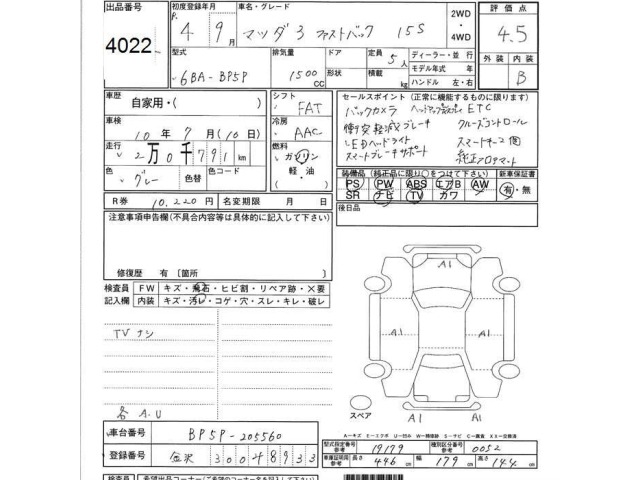 出品番号 4022
初度登録年月 R. 4年 9月
車名・グレード マツダ3 ファストバック 15S
2WD・4WD
評価点 4.5
型式 6BA-BP5P
排気量 1500 CC
ドア 形状
定員 5人 積載 kg
ディーラー・並行
モデル年式 年
ハンドル 左・右
外装 内装 B
車歴 自家用・( )
シフト FAT
車検 10年 9月 (10日)
冷房 AAC
走行 2万0千791km
燃料 ガソリン 軽油 ( )
色 グレー 色替 色コード
R券 10,220円 名変期限 月 日
セールスポイント (正常に機能するものに限ります)
バックカメラ ETC
衝突軽減ブレーキ クルーズコントロール
LEDヘッドライト スマートキー2個
スマートブレーキサポート 純正フロアマット
装備品 (純正品に限り○をつけて下さい) 新車保証書
PS PW ABS エアB AW 有・無
SR ナビ TV カワ
後日品
注意事項申告欄(不具合内容等は具体的に記入して下さい)
修復歴 有 [箇所 ]
検査員 FW キズ・飛石・ヒビ割・リペア跡・×要
記入欄 内装 キズ・汚レ・コゲ・穴・スレ・キレ・破レ
TVナシ
各A.U
A1
A1 A1
スペア A1 A1
A-キズ E-エクボ U-凹み W-補修跡 S-サビ C-腐食 XX-交換済
車台番号 BP5P-205560
型式指定番号 参考 19179 種別区分番号 参考 0052
登録番号 金沢 300 4 8933
車庫証明用 参考 長さ 446cm 幅 179cm 高さ 144cm
検査員